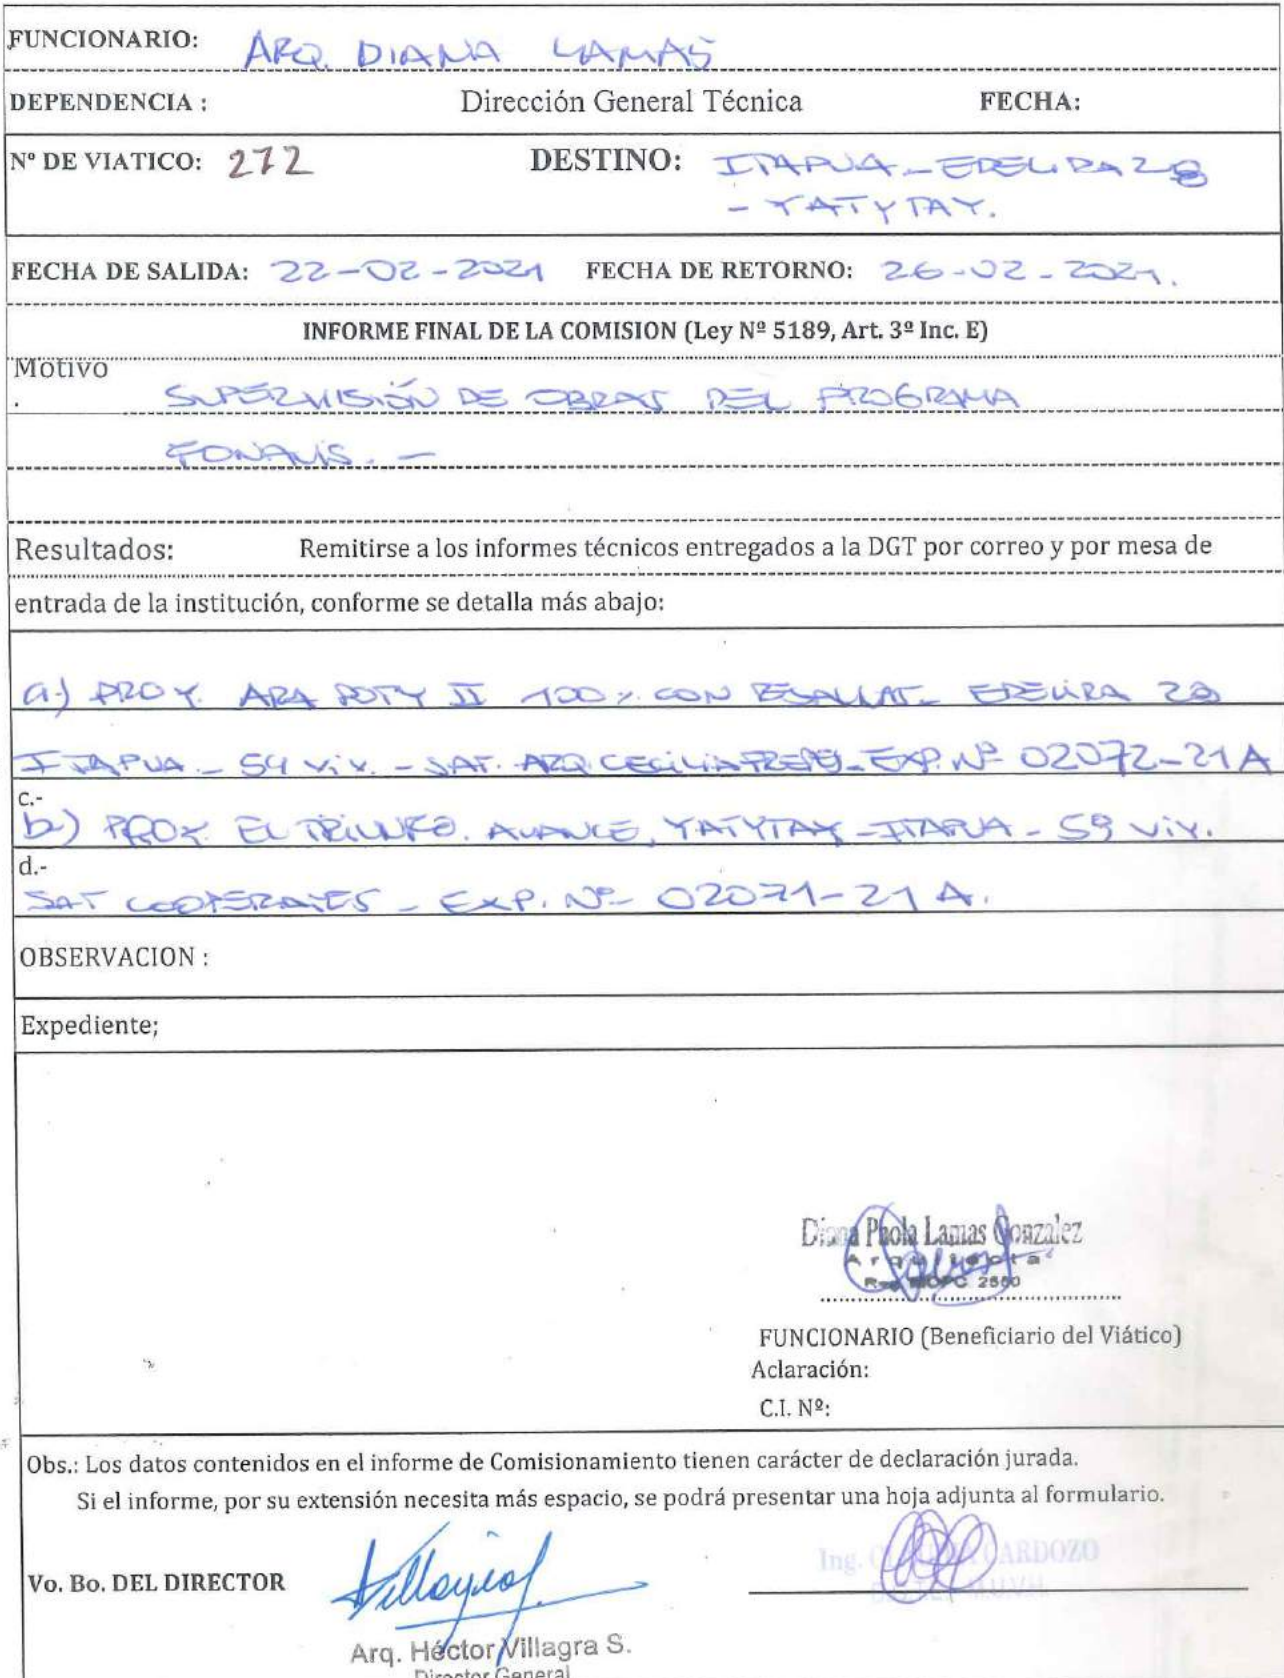 FUNCIONARIO: ARQ. DIANA LAMAS
DEPENDENCIA : Dirección General Técnica FECHA:
Nº DE VIATICO: 272 DESTINO: ITAPUA - EDELIRA 28
- YATYTAY.
FECHA DE SALIDA: 22-02-2021 FECHA DE RETORNO: 26-02-2021.
INFORME FINAL DE LA COMISION (Ley Nº 5189, Art. 3º Inc. E)
Motivo
. SUPERVISIÓN DE OBRAS DEL PROGRAMA
FONAVIS. -
Resultados: Remitirse a los informes técnicos entregados a la DGT por correo y por mesa de
entrada de la institución, conforme se detalla más abajo:
a-) PROY. ARA POTY II 100% CON - EDELIRA 28
ITAPUA - 59 viv. - SAT. ARQ CECILIA - EXP. Nº 02072-21A
c.-
b-) PROY. EL TRIUNFO. AVANCE, YATYTAY - ITAPUA - 59 viv.
d.-
SAT - EXP. Nº 02071-21 A.
OBSERVACION :
Expediente;
Diana Paola Lamas Gonzalez
Arquitecta
Reg MOPC 2550
FUNCIONARIO (Beneficiario del Viático)
Aclaración:
C.I. Nº:
Obs.: Los datos contenidos en el informe de Comisionamiento tienen carácter de declaración jurada.
Si el informe, por su extensión necesita más espacio, se podrá presentar una hoja adjunta al formulario.
Ing. CARDOZO
Vo. Bo. DEL DIRECTOR
Arq. Héctor Villagra S.
Director General